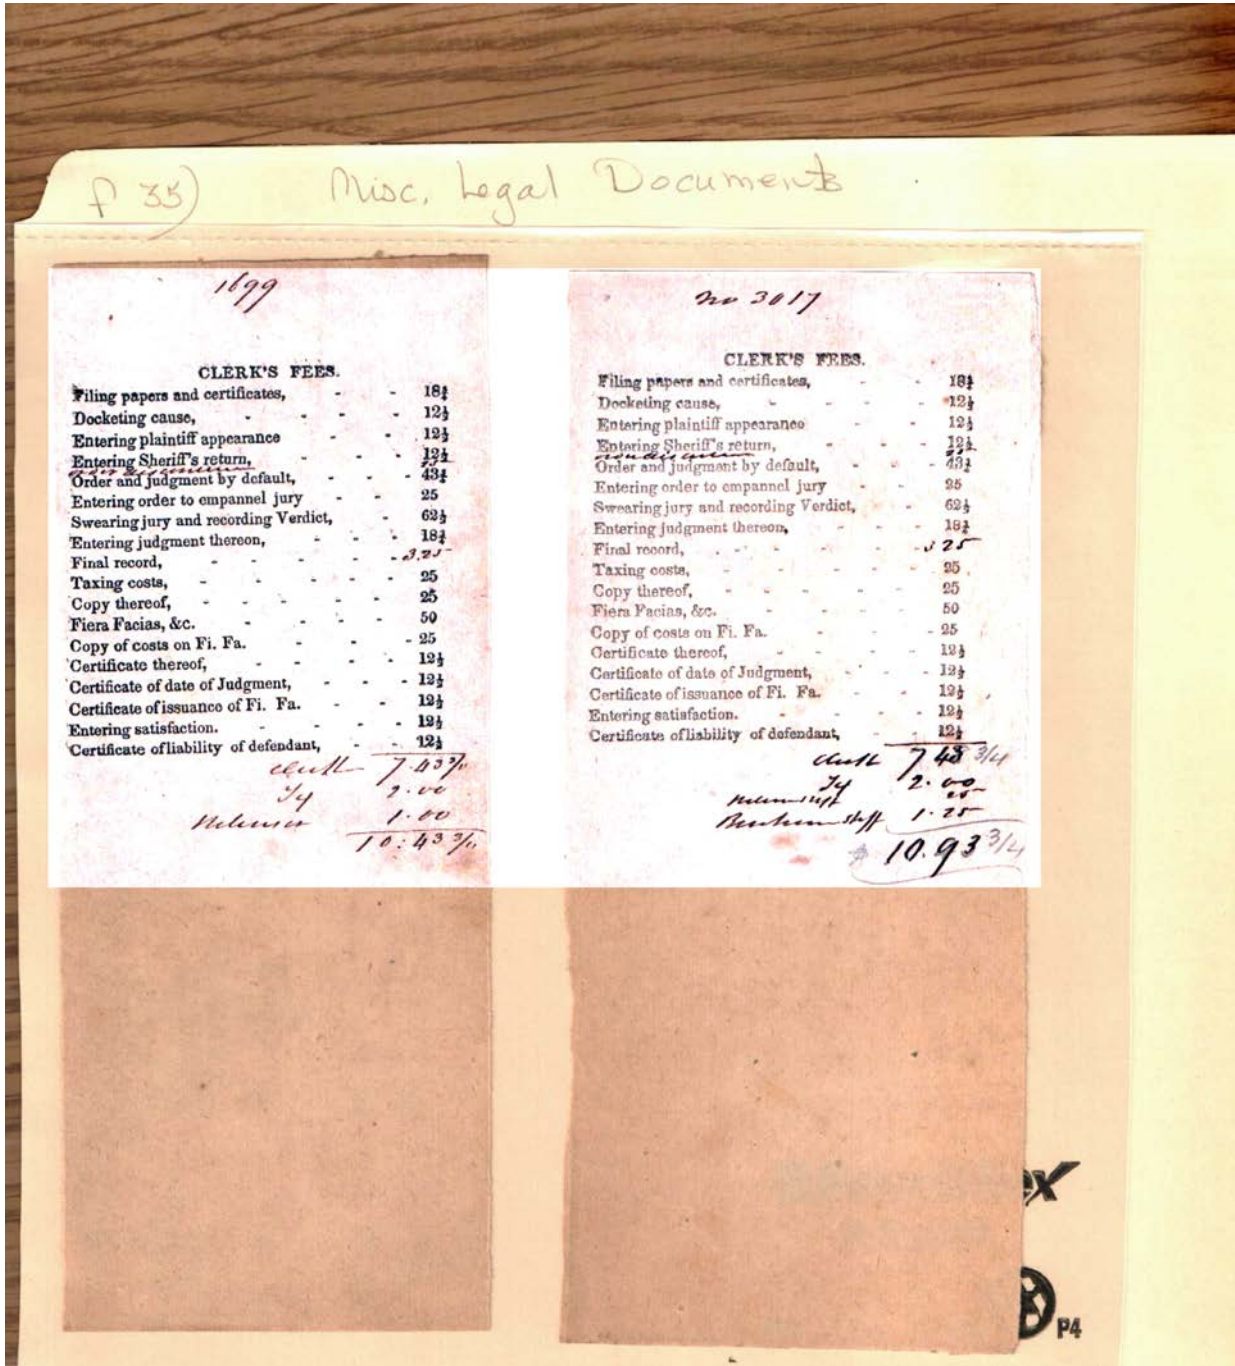 f 35) Misc. Legal Documents
1699
CLERK'S FEES.
Filing papers and certificates, - - 18¾
Docketing cause, - - - - 12½
Entering plaintiff appearance - - 12½
Entering Sheriff's return, - - - 12½
Order and judgment by default, - - - 43¾
Entering order to empannel jury - 25
Swearing jury and recording Verdict, - 62½
Entering judgment thereon, - - - 18¾
Final record, - - - - - 3.25
Taxing costs, - - - - - 25
Copy thereof, - - - - - 25
Fiera Facias, &c. - - - - 50
Copy of costs on Fi. Fa. - - - 25
Certificate thereof, - - - - 12½
Certificate of date of Judgment, - - - 12½
Certificate of issuance of Fi. Fa. - - 12½
Entering satisfaction. - - - - 12½
Certificate of liability of defendant, - - 12½
7.43 3/4
2.00
1.00
10.43 3/4
no 3017
CLERK'S FEES.
Filing papers and certificates, - - 18¾
Docketing cause, - - - - 12½
Entering plaintiff appearance - - - 12½
Entering Sheriff's return, - - - - 12½
Order and judgment by default, - - - 43¾
Entering order to empannel jury - - 25
Swearing jury and recording Verdict, - 62½
Entering judgment thereon, - - - 18¾
Final record, - - - - - 3 25
Taxing costs, - - - - - 25
Copy thereof, - - - - - 25
Fiera Facias, &c. - - - - 50
Copy of costs on Fi. Fa. - - - 25
Certificate thereof, - - - - 12½
Certificate of date of Judgment, - - - 12½
Certificate of issuance of Fi. Fa. - - 12½
Entering satisfaction. - - - - 12½
Certificate of liability of defendant, - 12½
7 43 3/4
2.00
25
1.25
$ 10.93 3/4
ex
P4